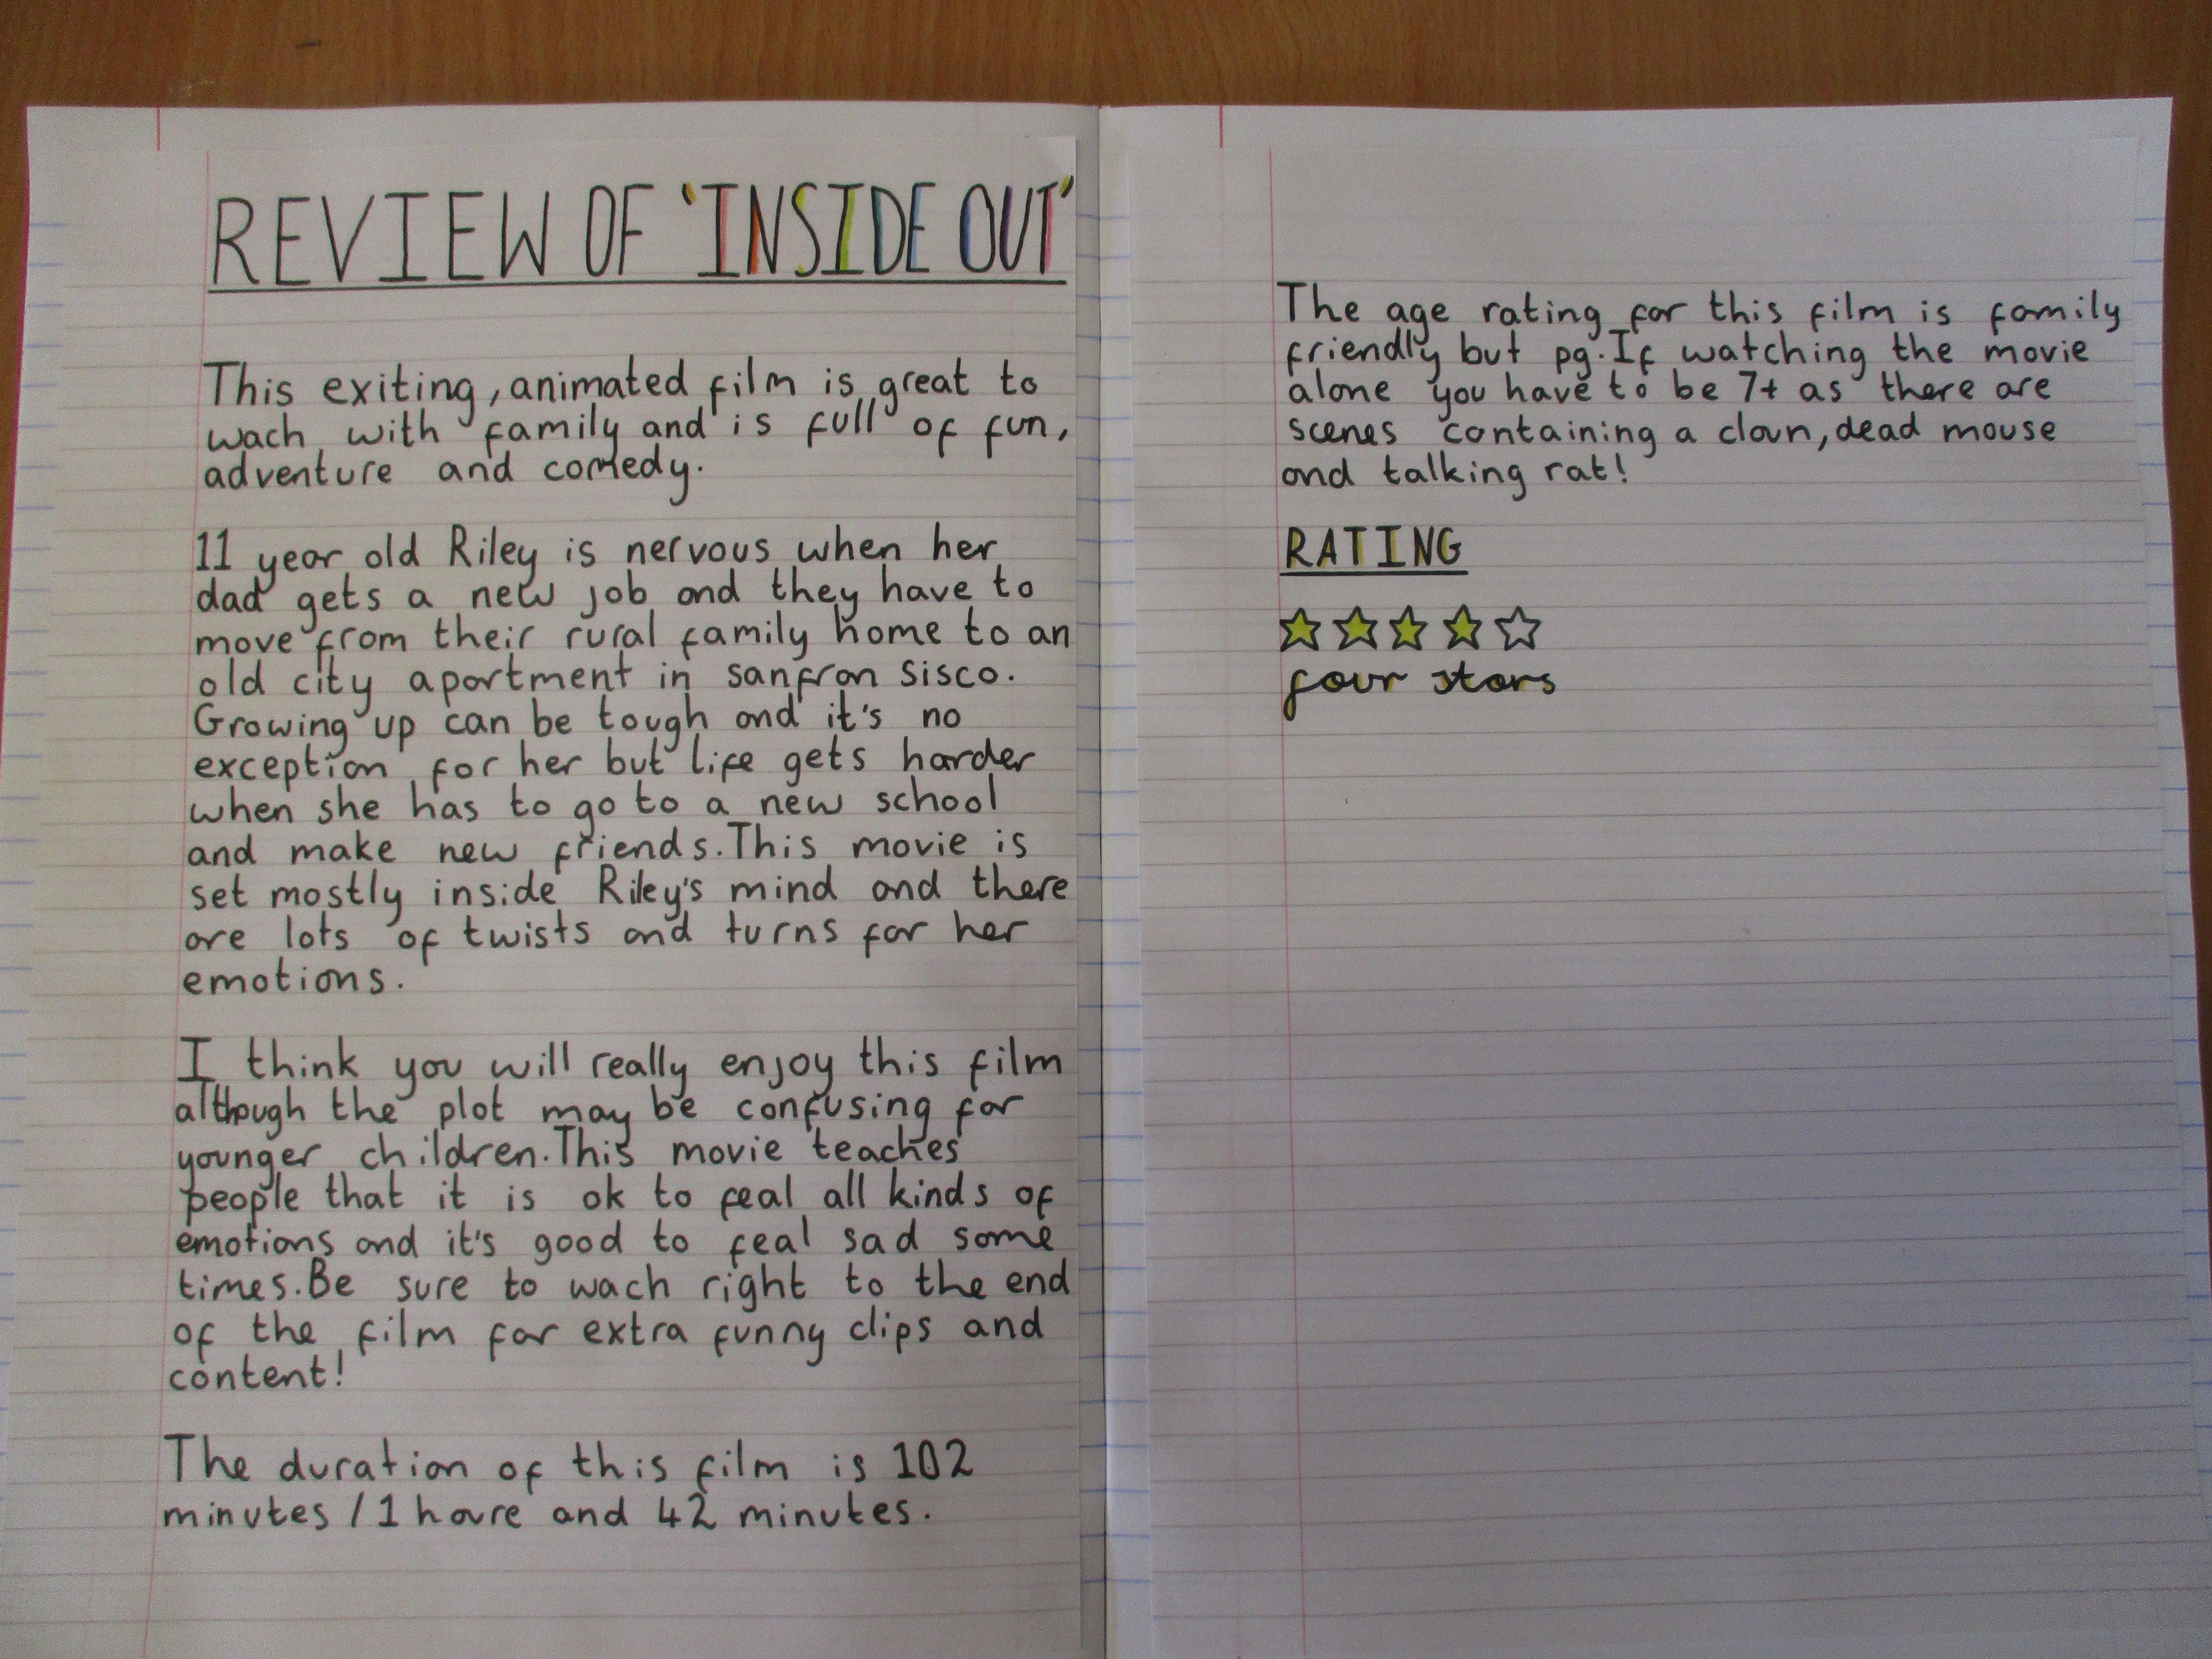 REVIEW OF 'INSIDE OUT'
This exiting, animated film is great to
wach with family and is full of fun,
adventure and comedy.
11 year old Riley is nervous when her
dad gets a new job and they have to
move from their rural family home to an
old city apartment in sanfran sisco.
Growing up can be tough and it's no
exception for her but life gets harder
when she has to go to a new school
and make new friends. This movie is
set mostly inside Riley's mind and there
are lots of twists and turns for her
emotions.
I think you will really enjoy this film
although the plot may be confusing for
younger children. This movie teaches
people that it is ok to feal all kinds of
emotions and it's good to feal sad some
times. Be sure to wach right to the end
of the film for extra funny clips and
content!
The duration of this film is 102
minutes / 1 houre and 42 minutes.
The age rating for this film is family
friendly but pg. If watching the movie
alone you have to be 7+ as there are
scenes containing a cloun, dead mouse
and talking rat!
RATING
four stars